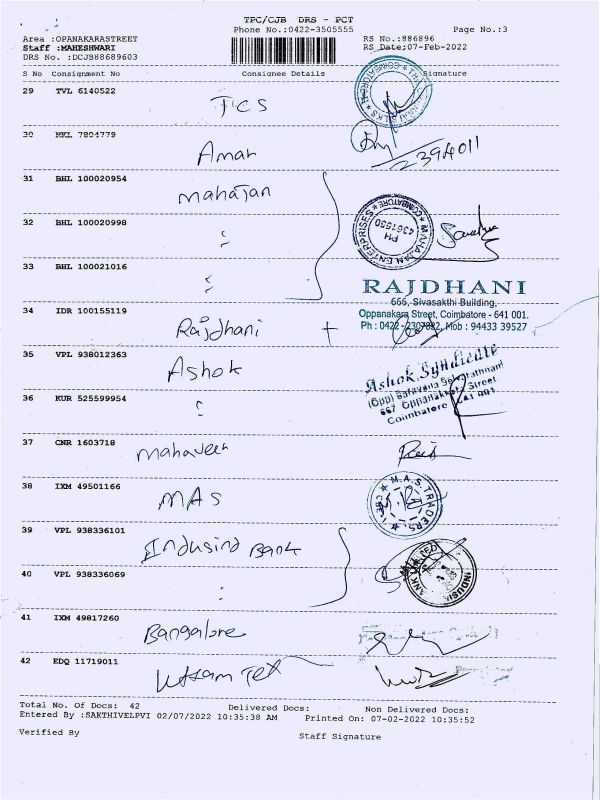 TPC/CJB DRS - PCT
Phone No.:0422-3505555
Page No.:3
Area :OPANAKARASTREET
RS No.:886896
Staff :MAHESHWARI
RS Date:07-Feb-2022
DRS No. :DCJB88689603
S No Consignment No Consignee Details Signature
29 TVL 6140522
TCS
30 NKL 7804779
Aman
2394011
31 BHL 100020954
mahajan
32 BHL 100020998
MAHAJAN ENTERPRISES
COIMBATORE
PH
4361550
33 BHL 100021016
RAJDHANI
666, Sivasakthi Building,
Oppanakara Street, Coimbatore - 641 001.
Ph : 0422 - 2307882, Mob : 94433 39527
34 IDR 100155119
Rajdhani +
35 VPL 938012363
Ashok
Ashok Syndicate
(Opp) Saravana Selvarathnam
667 Oppanakkara Street
Coimbatore 641 001
36 KUR 525599954
37 CNR 1603718
mahaveer
38 IXM 49501166
MAS
M.A.S. TRADERS
39 VPL 938336101
Indusind Bank
40 VPL 938336069
41 IXM 49817260
Bangalore
42 EDQ 11719011
Uttam Tex
Total No. Of Docs: 42 Delivered Docs: Non Delivered Docs:
Entered By :SAKTHIVELPVI 02/07/2022 10:35:38 AM Printed On: 07-02-2022 10:35:52
Verified By
Staff Signature